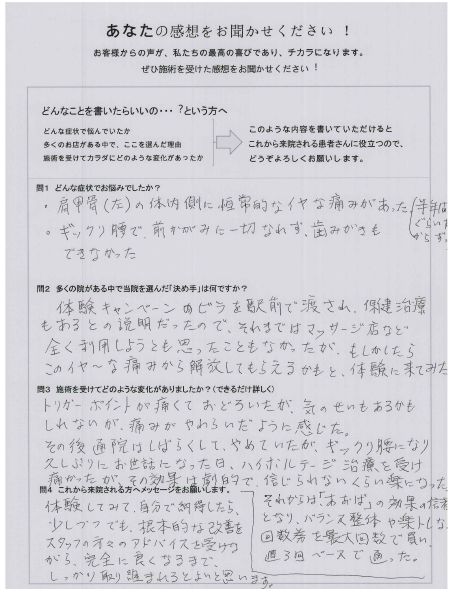 あなたの感想をお聞かせください！
お客様からの声が、私たちの最高の喜びであり、チカラになります。
ぜひ施術を受けた感想をお聞かせください！
どんなことを書いたらいいの・・・?という方へ
どんな症状で悩んでいたか
多くのお店がある中で、ここを選んだ理由
施術を受けてカラダにどのような変化があったか
このような内容を書いていただけると
これから来院される患者さんに役立つので、
どうぞよろしくお願いします。
問1 どんな症状でお悩みでしたか？
・肩甲骨(左)の体内側に恒常的なイヤな痛みがあった(半年
ぐらい
からず
・ギックリ腰で、前かがみに一切なれず、歯みがきも
できなかった
問2 多くの院がある中で当院を選んだ「決め手」は何ですか？
体験キャンペーンのビラを駅前で渡され、保健治療
もあるとの説明だったので、それまではマッサージ店など
全く利用しようとも思ったこともなかったが、もしかしたら
このイヤ〜な痛みから解放してもらえるかもと、体験に来てみた
問3 施術を受けてどのような変化がありましたか？(できるだけ詳しく)
トリガーポイントが痛くておどろいたが、気のせいもあるかも
しれないが、痛みがやわらいだように感じた。
その後通院はしばらくして、やめていたが、ギックリ腰になり
久しぶりにお世話になった日、ハイボルテージ治療を受け
痛かったが、その効果は劇的で、信じられないくらい楽になった
問4 これから来院される方へメッセージをお願いします。
体験してみて、自分で納得したら、
少しづつでも、根本的な改善を
スタッフの方々のアドバイスを受けな
がら、完全に良くなるまで、
しっかり取り組まれるとよいと思います。
それからは「あおば」の効果の信者
となり、バランス整体や楽トレな
回数券を最大回数で買い、
週3回ペースで通った。